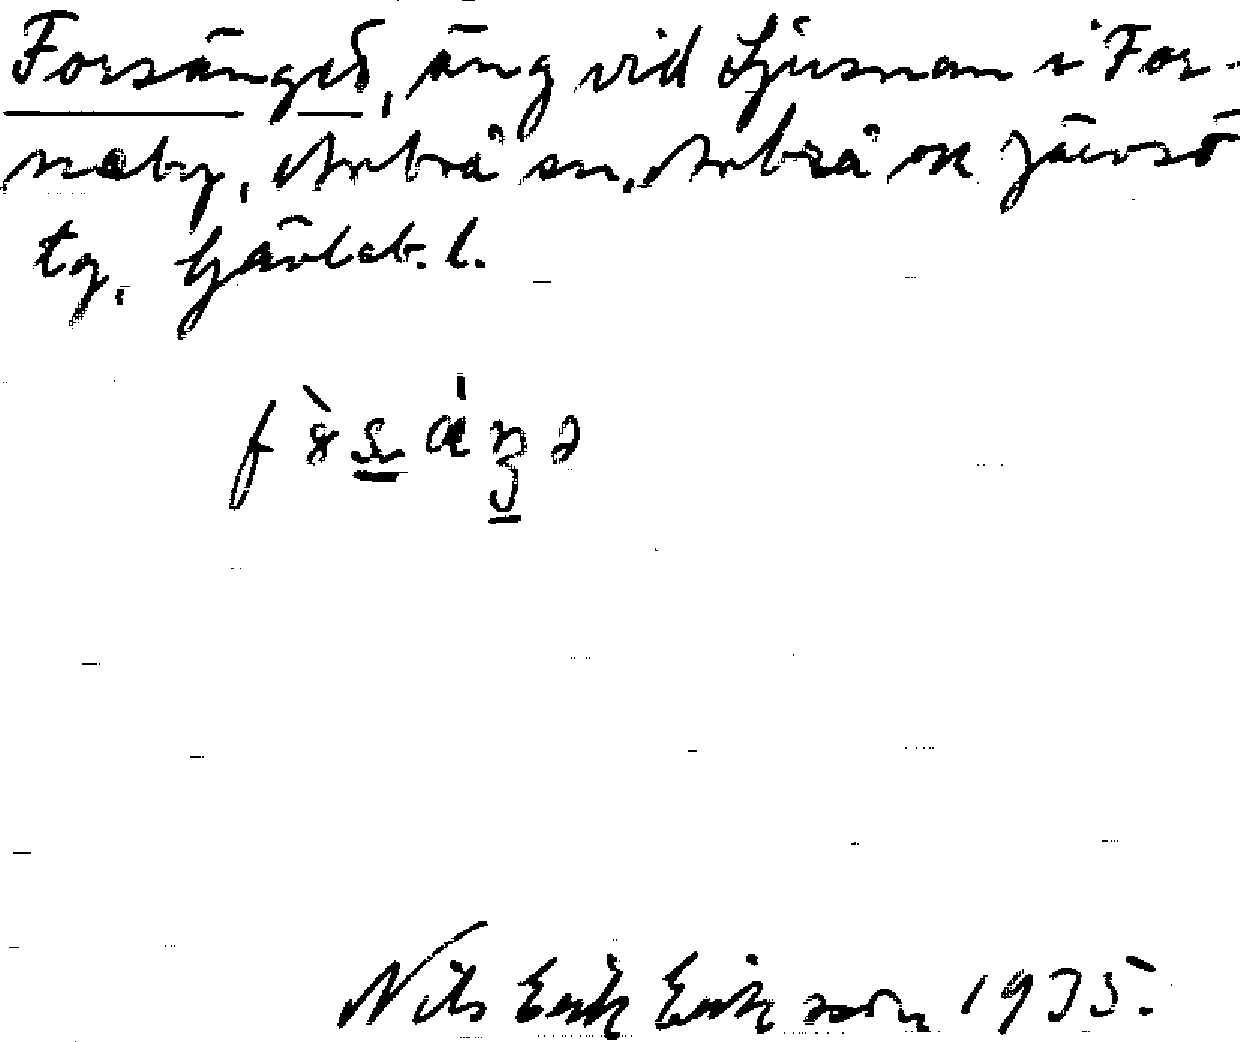 Forsänged, äng vid Ljusnan i For-
neby, Arbrå sn, Arbrå ok Järvsö
tg, Gävleb. l.
Nils Erik Eriksson 1935.